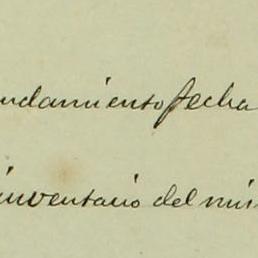 ndamiento fecha
inventario del mis